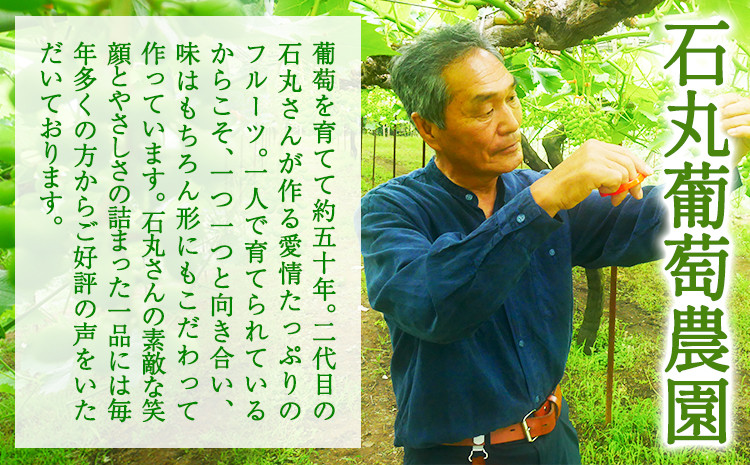 石丸葡萄農園
葡萄を育てて約五十年。二代目の
石丸さんが作る愛情たっぷりの
フルーツ。一人で育てられている
からこそ、一つ一つと向き合い、
味はもちろん形にもこだわって
作っています。石丸さんの素敵な笑
顔とやさしさの詰まった一品には毎
年多くの方からご好評の声をいた
だいております。